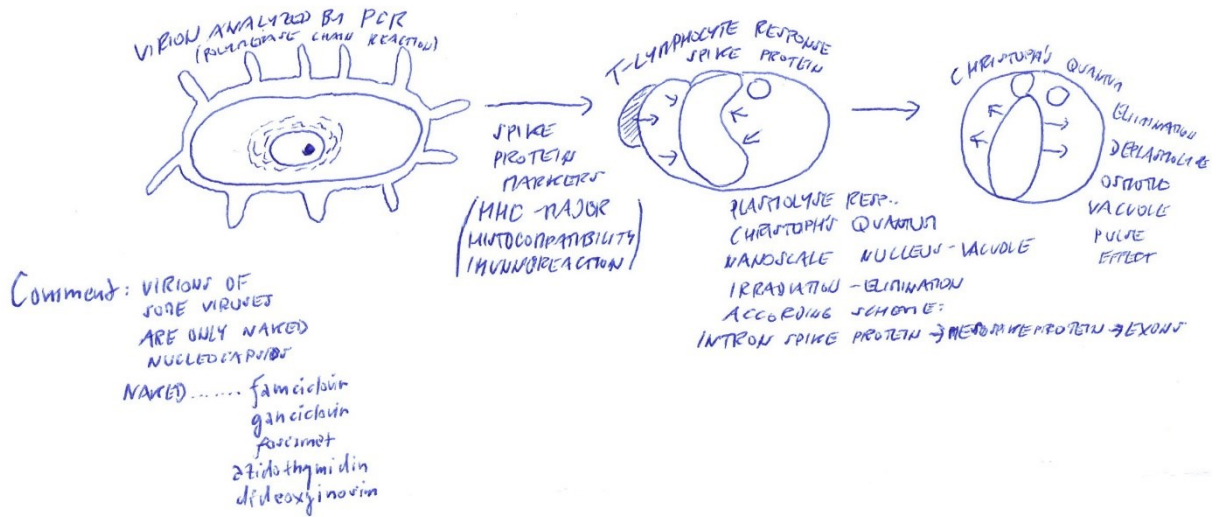 VIRION ANALYZED BY PCR
(POLYMERASE CHAIN REACTION)
SPIKE
PROTEIN
MARKERS
(MHC-MAJOR
HISTOCOMPATIBILITY
IMUNNOREACTION)
T-LYMPHOLYTE RESPONSE
SPIKE PROTEIN
PLASMOLYSE RESP..
CHRISTOPH'S QUANTUM
NANOSCALE NUCLEUS-VACUOLE
IRRADIATION-ELIMINATION
ACCORDING SCHEME:
INTRON SPIKE PROTEIN → MESOSPIKEPROTEIN → EXONS
CHRISTOPH'S QUANTUM
ELIMINATION
DEPLASMOLYSE
OSMOTIC
VACUOLE
PULSE
EFFECT
Comment: VIRIONS OF
SOME VIRUSES
ARE ONLY NAKED
NUCLEOCAPSIDS
NAKED....... famciclovir
ganciclovir
foscarnet
azidothymidin
dideoxyinosin